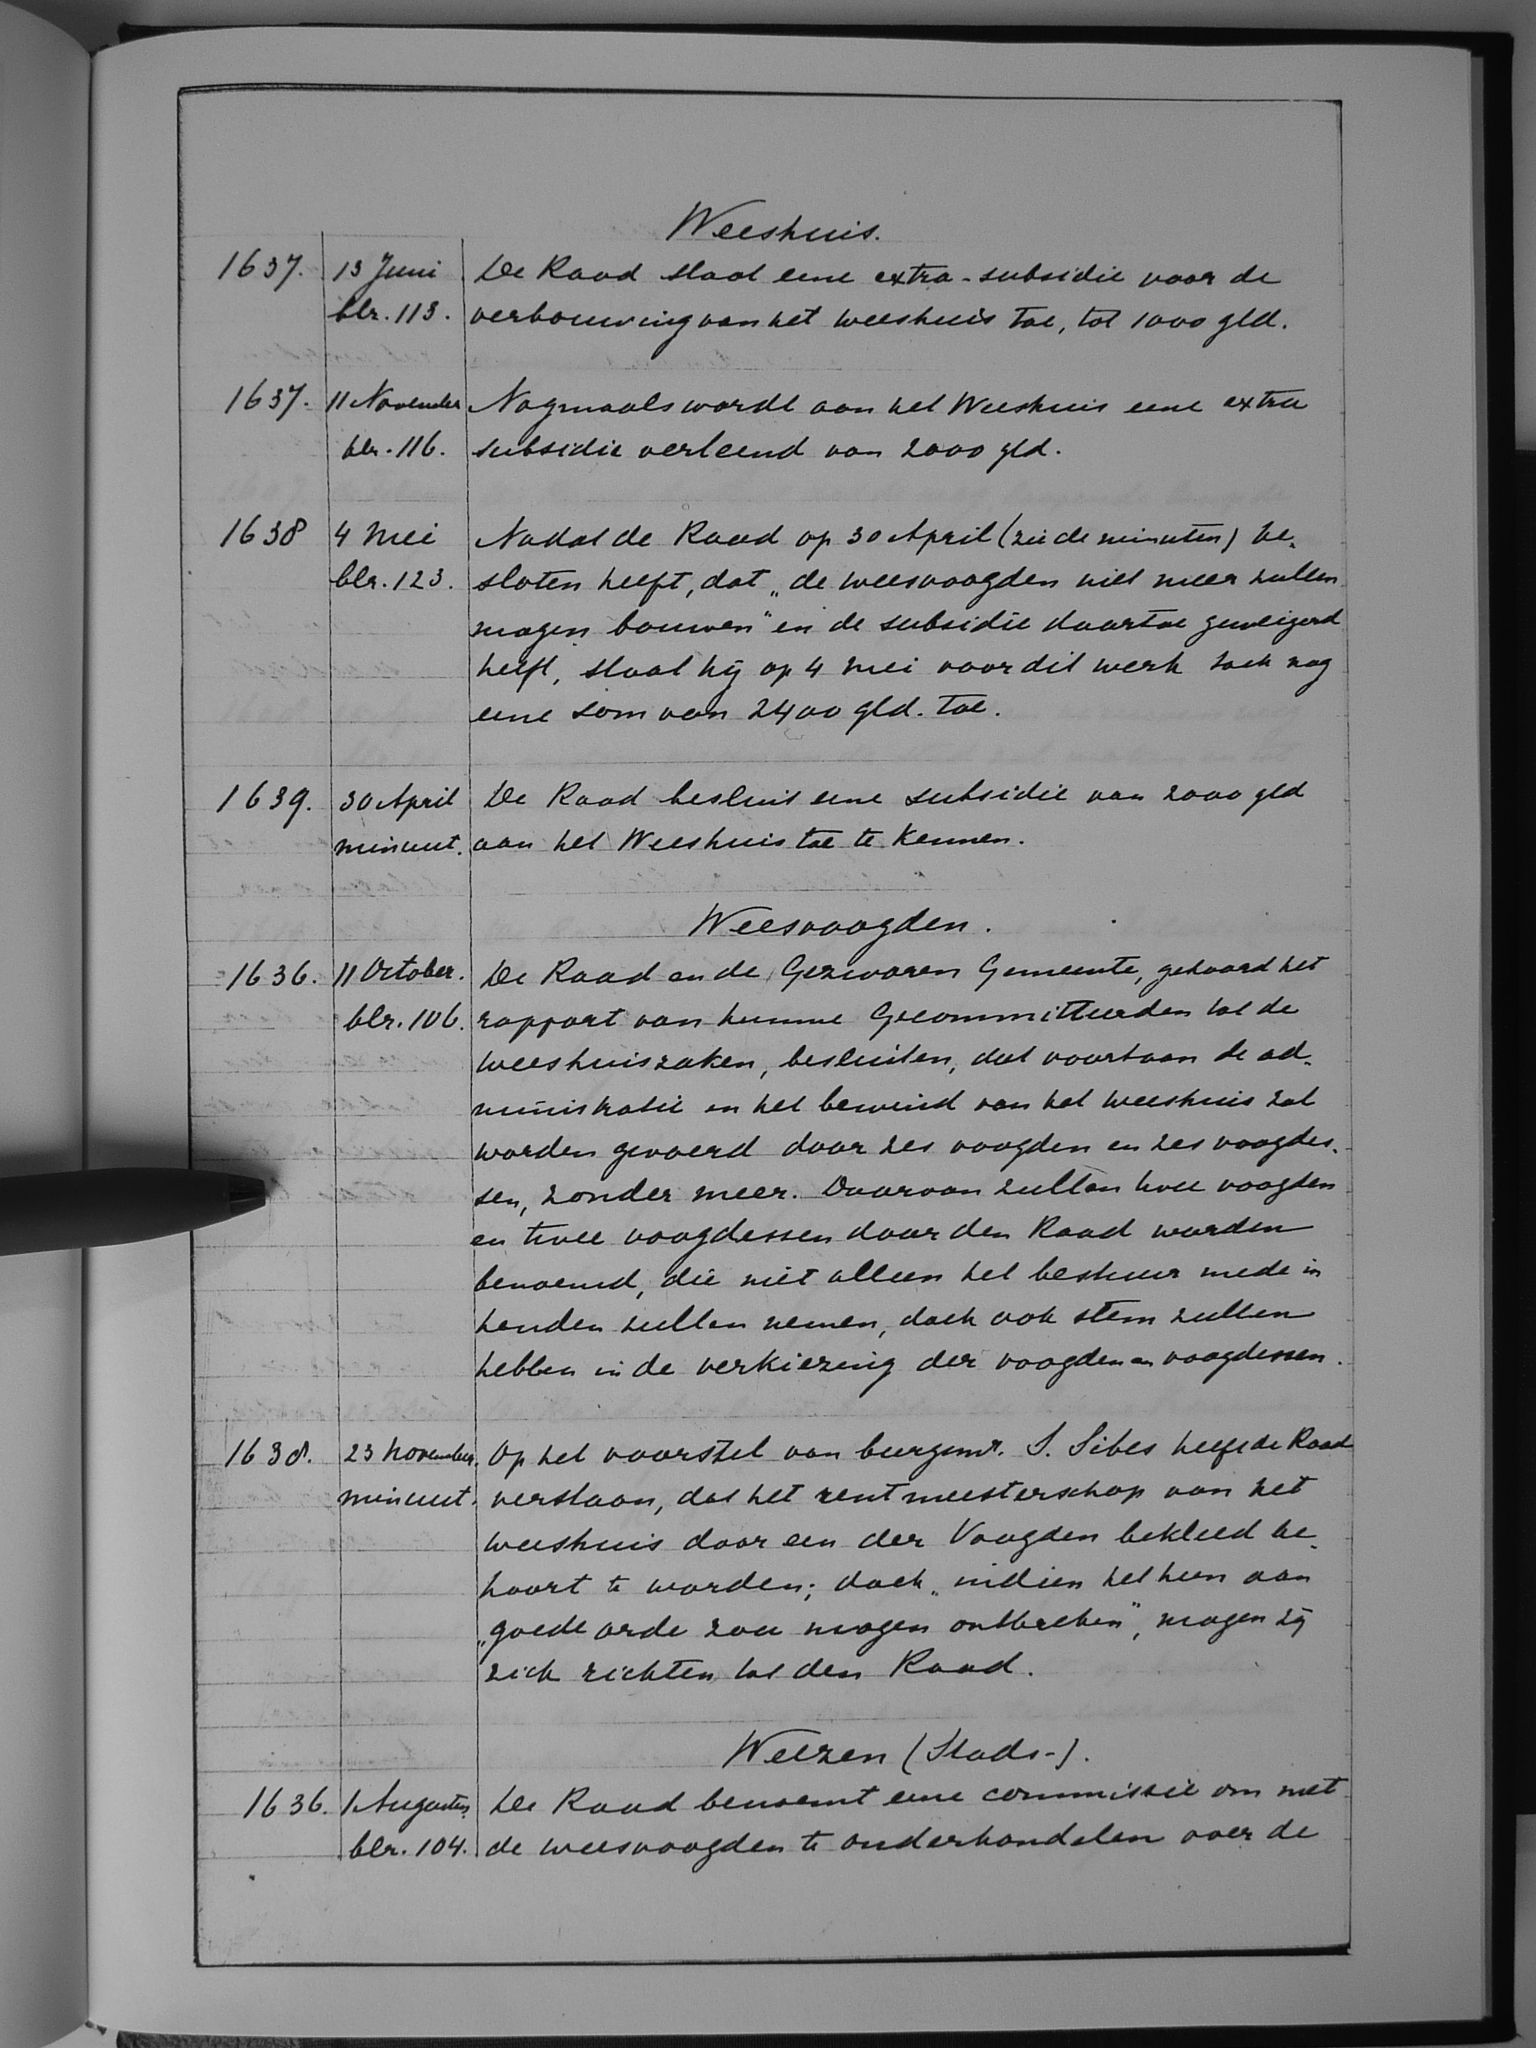 Weeshuis.
1637. 13 Juni De Raad staat eene extra-subsidie voor de
blz. 113. verbouwing van het weeshuis toe, tot 1000 gld.
1637. 11 November Nogmaals wordt aan het Weeshuis eene extra
blz. 116. subsidie verleend van 2000 gld.
1638 4 Mei Nadat de Raad op 30 April (zie de minuten) be-
blz. 123. sloten heeft, dat „de weesvoogden niet meer zullen
mogen bouwen" en de subsidie daartoe geweigerd
heeft, staat hij op 4 Mei voor dit werk toch nog
eene som van 2400 gld. toe.
1639. 30 April De Raad besluit eene subsidie van 2000 gld
minuut. aan het Weeshuis toe te kennen.
Weesvoogden.
1636. 11 October. De Raad en de Gezworen Gemeente, gehoord het
blz. 106. rapport van hunne Gecommitteerden tot de
weeshuiszaken, besluiten, dat voortaan de ad-
ministratie en het bewind van het weeshuis zal
worden gevoerd door zes voogden en zes voogdes-
sen, zonder meer. Daarvan zullen twee voogden
en twee voogdessen door den Raad worden
benoemd, die niet alleen het bestuur mede in
handen zullen nemen, doch ook stem zullen
hebben in de verkiezing der voogden en voogdessen.
1638. 23 November. Op het voorstel van burgemr. S. Sibes heeft de Raad
minuut. verstaan, dat het rentmeesterschap van het
weeshuis door een der Voogden bekleed be-
hoort te worden; doch „indien het hun aan
„goede orde zou mogen ontbreken", mogen zij
zich richten tot den Raad.
Weezen (Stads-).
1636. 1 Augustus. De Raad benoemt eene commissie om met
blz. 104. de weesvoogden te onderhandelen over de